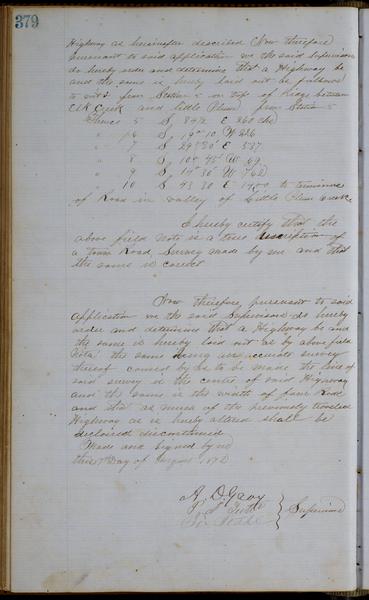 379
Highway as hereinafter described Now therefore
pursuant to said application we the said Supervisors
do hereby order and determine that a Highway be
and the same is hereby laid out as follows
to wit: from Station 5 on top of Ridge between
Elk Creek and Little Plum from Station 5
Thence 5 S 84½ E 260
" 6 S 19° 10 W 226
" 7 S 29° 30' E 537
" 8 S 10° 45' W 69
" 9 S 14° 30' W 762
" 10 S 43 30 E 1400 to terminus
of Road in valley of Little Plum Creek
I hereby certify that the
above field Note is a true description of
a town Road Survey made by me and that
the same is correct
Now therefore, pursuant to said
application we the said Supervisors do hereby
order and determine that a Highway be and
the same is hereby laid out as by above field
Note the same being an accurate survey
thereof caused by us to be made the line of
said survey is the centre of said Highway
and the same is the width of four Rods
and that as much of the previously traveled
Highway as is hereby altered shall be
declared discontinued
Made and Signed by us
this 7th Day of August 187
A. D. Gray
Supervisors